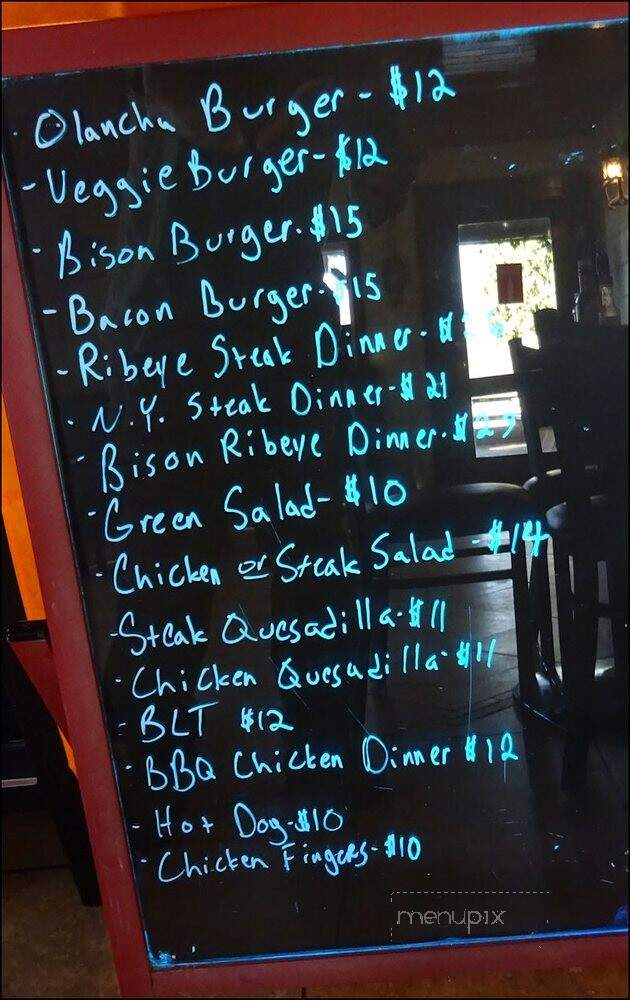 Olancha Burger - $12
- Veggie Burger - $12
- Bison Burger - $15
- Bacon Burger - $15
- Ribeye Steak Dinner -
- N.Y. Steak Dinner - $21
- Bison Ribeye Dinner -
- Green Salad - $10
- Chicken or Steak Salad - $14
- Steak Quesadilla - $11
- Chicken Quesadilla - $11
- BLT $12
- BBQ Chicken Dinner $12
- Hot Dog - $10
- Chicken Fingers - $10
menupix